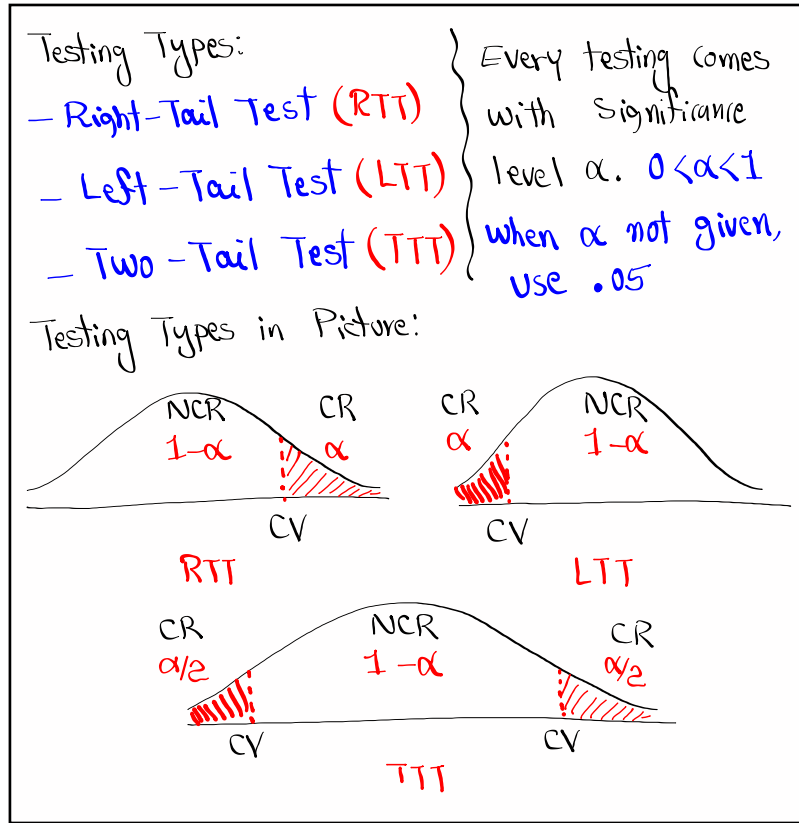 Testing Types:
– Right-Tail Test (RTT)
– Left-Tail Test (LTT)
– Two-Tail Test (TTT)
Every testing comes
with Significance
level α. 0<α<1
when α not given,
use .05
Testing Types in Picture:
NCR CR
1-α α
CV
RTT
CR NCR
α 1-α
CV
LTT
CR NCR CR
α/2 1-α α/2
CV CV
TTT